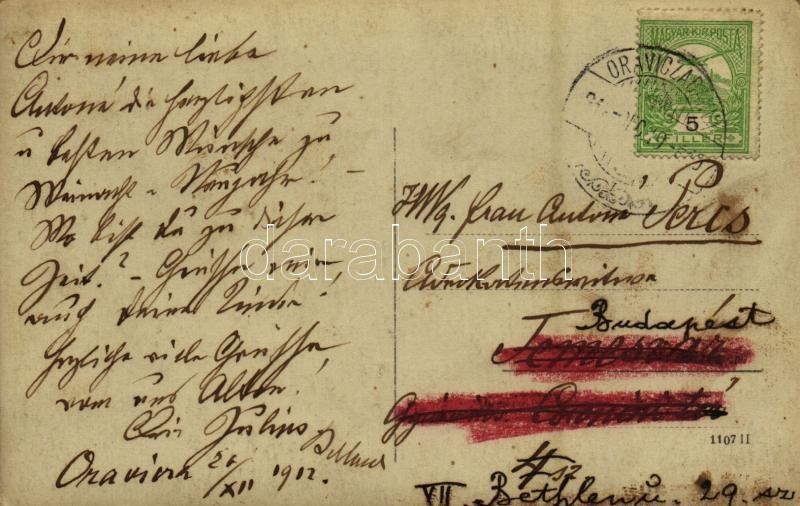 Dir meine liebe
Antonie die herzlichsten
u besten Wünsche zu
Weinacht u Neujahr! –
Wo bist du zu dieser
Zeit? – Grüsse mir
auch deine Kinder!
Herzliche viele Grüsse,
von uns Allen!
Dein Julius
Oravicza 20/XII 1912.
MAGYAR KIR. POSTA
ORAVICZA
5
FILLER
Frau Antonie Percs
Advokatenswitwe
Budapest
Temesvár
VII. Bethlen u. 29. sz
1107 II
darabanth